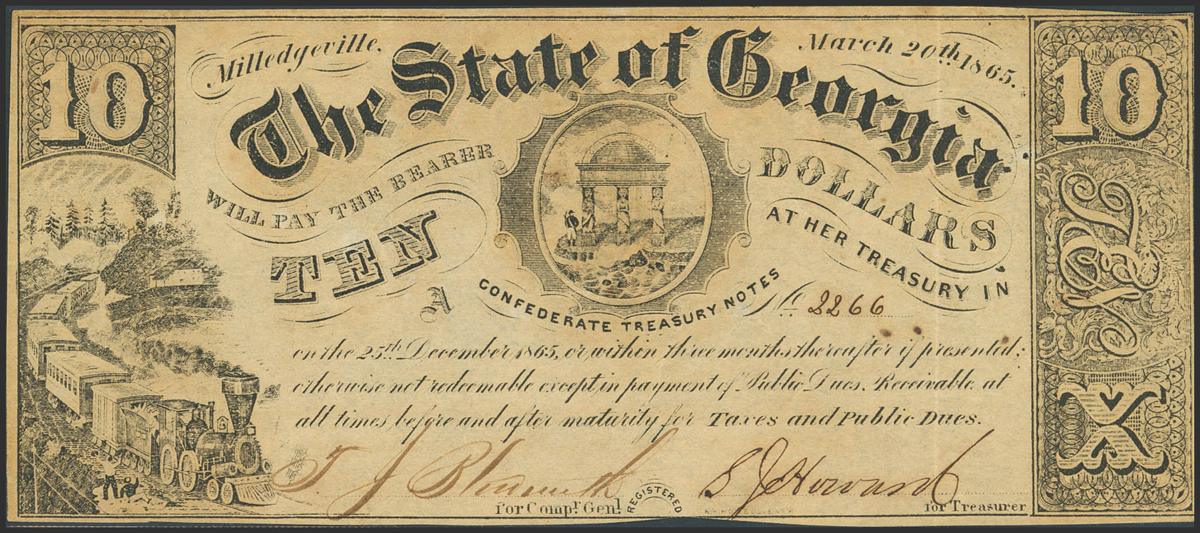 10
Milledgeville,
March 20th, 1865.
10
The State of Georgia
WILL PAY THE BEARER
TEN
DOLLARS
A
CONFEDERATE TREASURY NOTES
AT HER TREASURY IN
No. 2266
on the 25th December 1865, or within three months thereafter if presented;
otherwise not redeemable except in payment of Public Dues. Receivable at
all times before and after maturity for Taxes and Public Dues.
T. J.
S J Howard
for Compt. Genl.
REGISTERED
for Treasurer
X